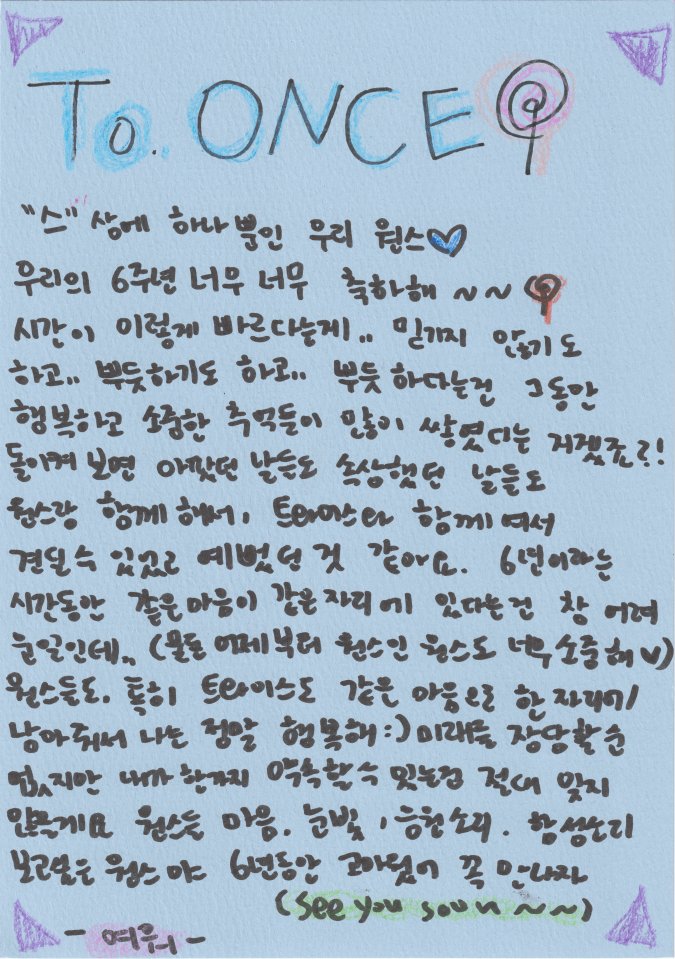 To. ONCE
"스" 상에 하나 뿐인 우리 원스
우리의 6주년 너무 너무 축하해 ~~
시간이 이렇게 빠르다는게.. 믿기지 않기도
하고.. 뿌듯하기도 하고.. 뿌듯하다는건 그동안
행복하고 소중한 추억들이 많이 쌓였다는 거겠죠?!
돌이켜 보면 아팠던 날들도 속상했던 날들도
원스랑 함께 해서, 트와이스와 함께여서
견딜 수 있었고 예뻤던 것 같아요. 6년이라는
시간동안 같은 마음이 같은 자리에 있다는건 참 어려
운일인데.. (물론 어제부터 원스인 원스도 너무 소중해)
원스들도, 특히 트와이스도 같은 마음으로 한 자리에
남아줘서 나는 정말 행복해:) 미래를 장담할순
없지만 내가 한가지 약속할 수 있는건 절대 잊지
않을게요 원스들 마음, 눈빛, 응원소리, 함성소리
보고싶은 원스야 6년동안 고마웠어 꼭 만나자
(see you soon ~~)
-여뤄-